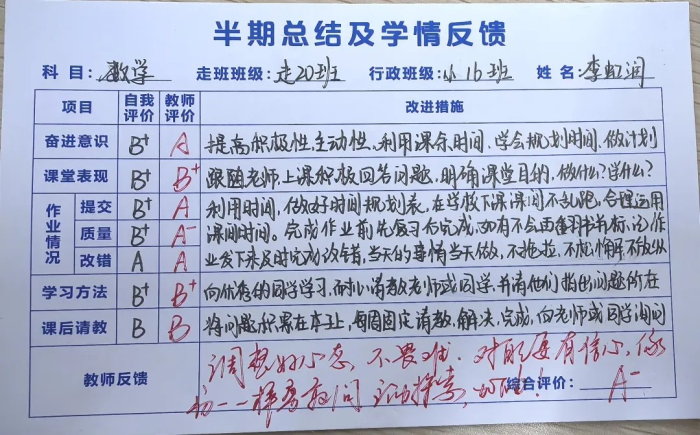 半期总结及学情反馈
科目：数学 走班班级：走20班 行政班级：小16班 姓名：李虹润
项目 自我评价 教师评价 改进措施
奋进意识 B+ A 提高积极性，主动性，利用课余时间，学会规划时间，做计划
课堂表现 B+ B+ 跟随老师上课积极回答问题，明确课堂目的，做什么？学什么？
作业情况 提交 B+ A 利用时间，做好时间规划表，在学校下课课间不乱跑，合理运用
质量 B+ A- 课间时间。完成作业前先复习后完成，如有不会再翻书并标注，作
改错 A A 业发下来及时完成改错，当天的事情当天做，不拖拉，不松懈，不放纵
学习方法 B+ B+ 向优秀的同学学习，而耐心请教老师或同学，并请他们指出问题所在
课后请教 B B 将问题积累在本子上，每周固定请教，解决，完成，向老师或同学询问
教师反馈 调整好心态，不畏难，对自己要有信心，
一样 综合评价：A-